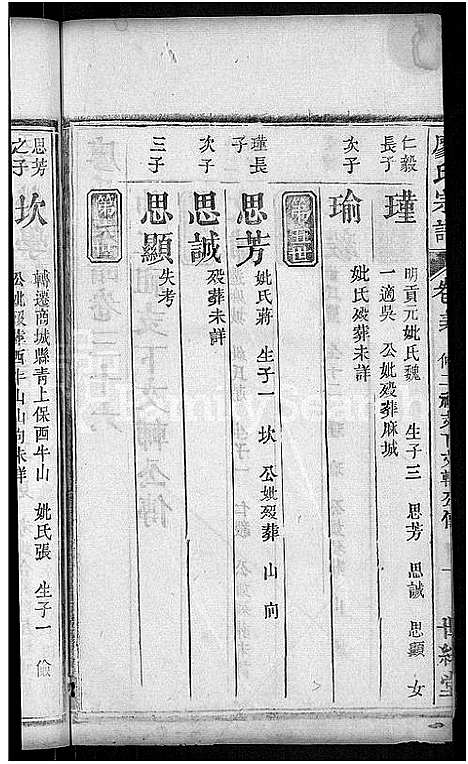 廖氏宗譜
世綵堂
仁毅長子
瑾
明貢元妣氏魏 生子三 思芳 思誠 思顯 女
一適吳 公妣歿葬麻城
次子
瑜
妣氏歿葬未詳
第五世
瑾長子
思芳
妣氏蔣 生子一 坎 公妣歿葬 山 向
次子
思誠
歿葬未詳
三子
思顯
失考
第六世
思芳之子
坎
轉遷商城縣青上保西牛山 妣氏張 生子一 儉
公妣歿葬西牛山山向未詳